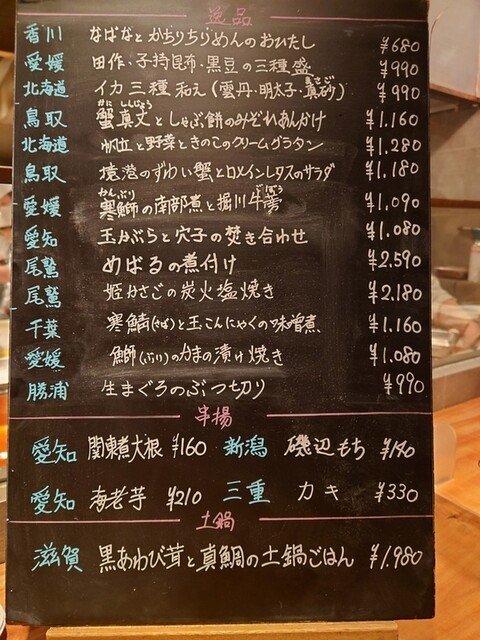 逸品
香川 なばなとかちりちりめんのおひたし ¥680
愛媛 田作・子持昆布・黒豆の三種盛 ¥990
北海道 イカ三種和え(雲丹・明太子・真砂) ¥990
鳥取 蟹真丈としゃぶ餅のみぞれあんかけ ¥1.160
北海道 帆立と野菜ときのこのクリームグラタン ¥1.280
鳥取 境港のずわい蟹とロメインレタスのサラダ ¥1.180
愛媛 寒鰤の南部煮と堀川牛蒡 ¥1.090
愛知 玉かぶらと穴子の焚き合わせ ¥1.080
尾鷲 めばるの煮付け ¥2.590
尾鷲 姫かさごの炭火塩焼き ¥2.180
千葉 寒鯖(さば)と玉こんにゃくの味噌煮 ¥1.160
愛媛 鰤(ぶり)のかまの漬け焼き ¥1.080
勝浦 生まぐろのぶつ切り ¥990
串揚
愛知 関東煮大根 ¥160 新潟 磯辺もち ¥140
愛知 海老芋 ¥210 三重 カキ ¥330
土鍋
滋賀 黒あわび茸と真鯛の土鍋ごはん ¥1.980